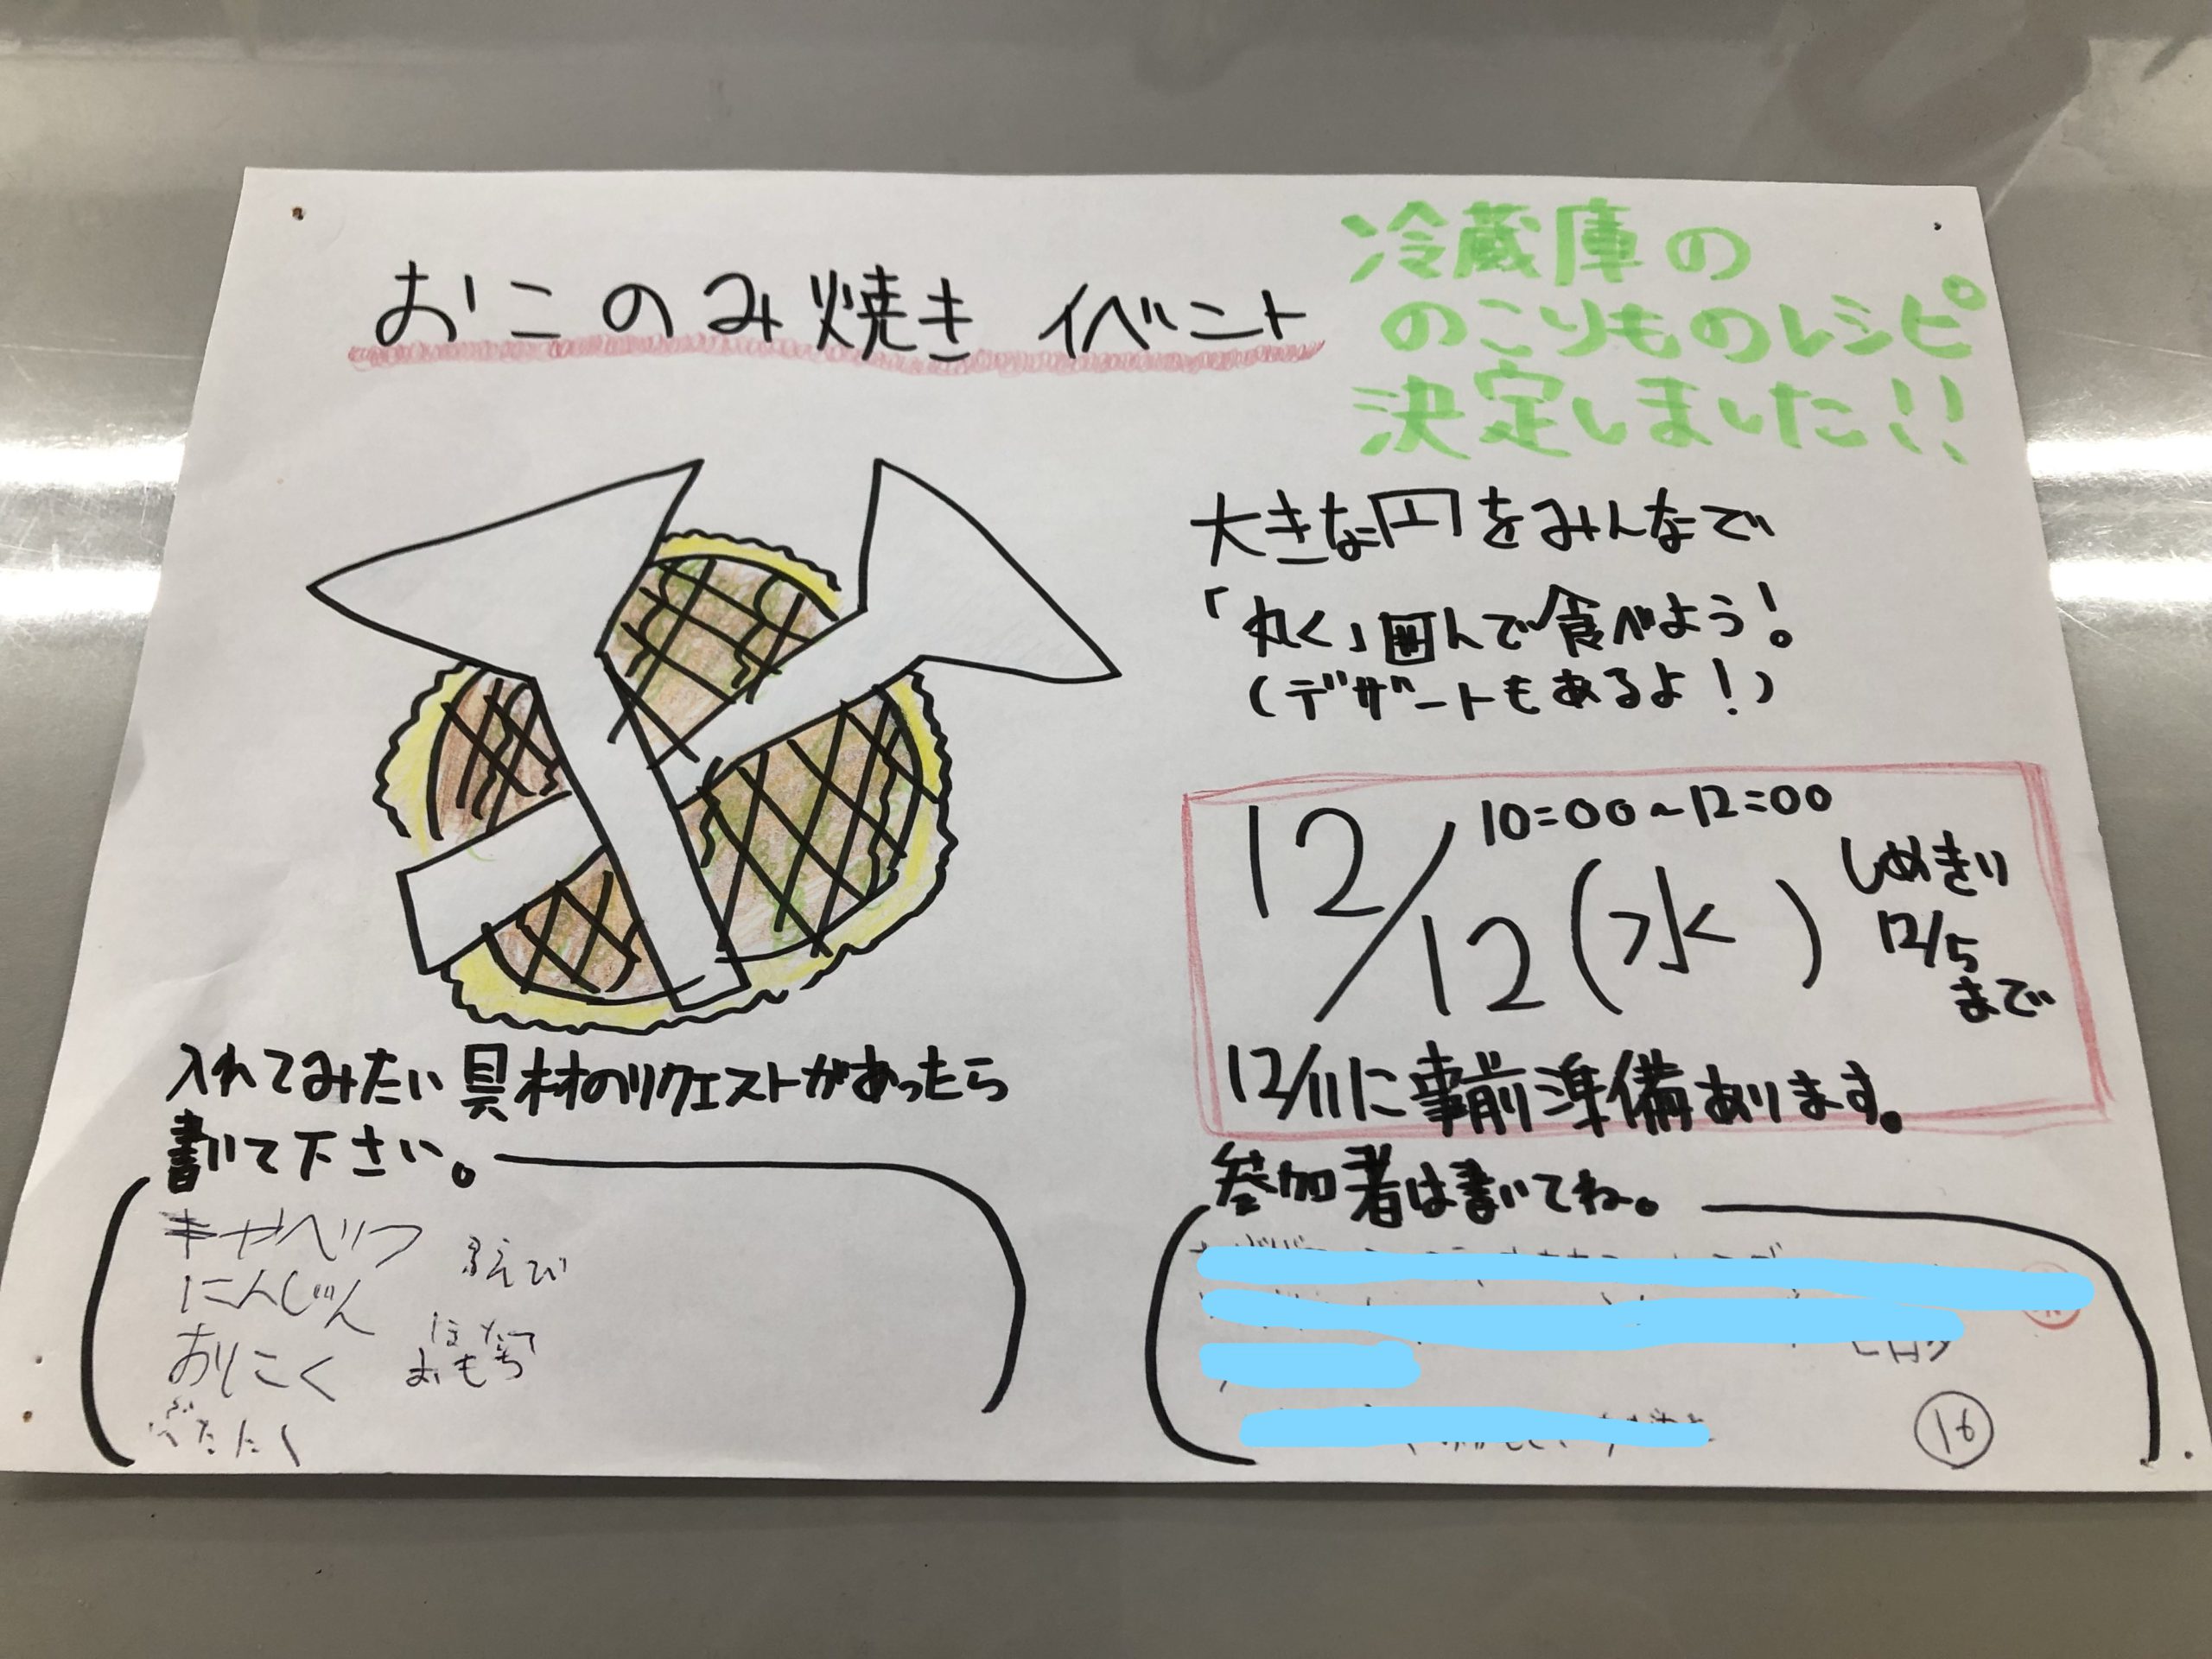 おこのみ焼き イベント
冷蔵庫の
のこりものレシピ
決定しました!!
大きな円をみんなで
「丸く」囲んで食べよう!
(デザートもあるよ!)
10:00~12:00
12/12(水)
しめきり
12/5
まで
12/11に事前準備あります。
入れてみたい具材のリクエストがあったら
書いて下さい。
キャベツ
えび
にんじん
ほたて
おにく
おもち
ぶたにく
参加者は書いてね。
16